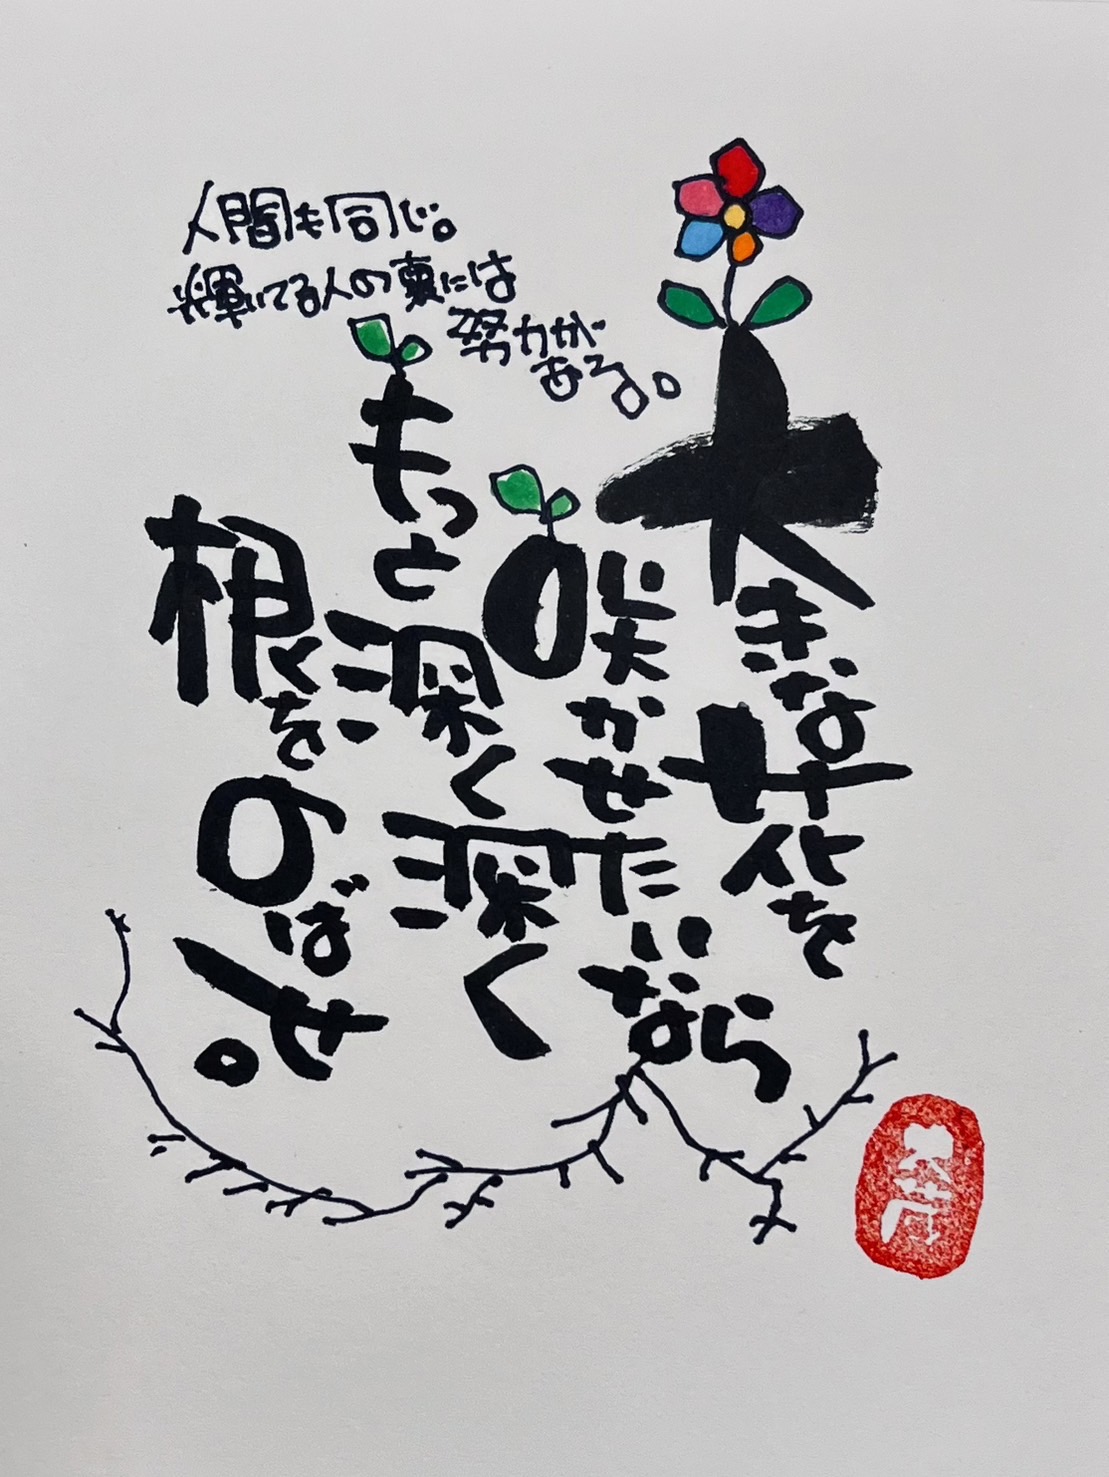 大きな花を
咲かせたいなら
もっと深く深く
根をのばせ。
人間も同じ。
輝いてる人の裏には
努力が
ある。